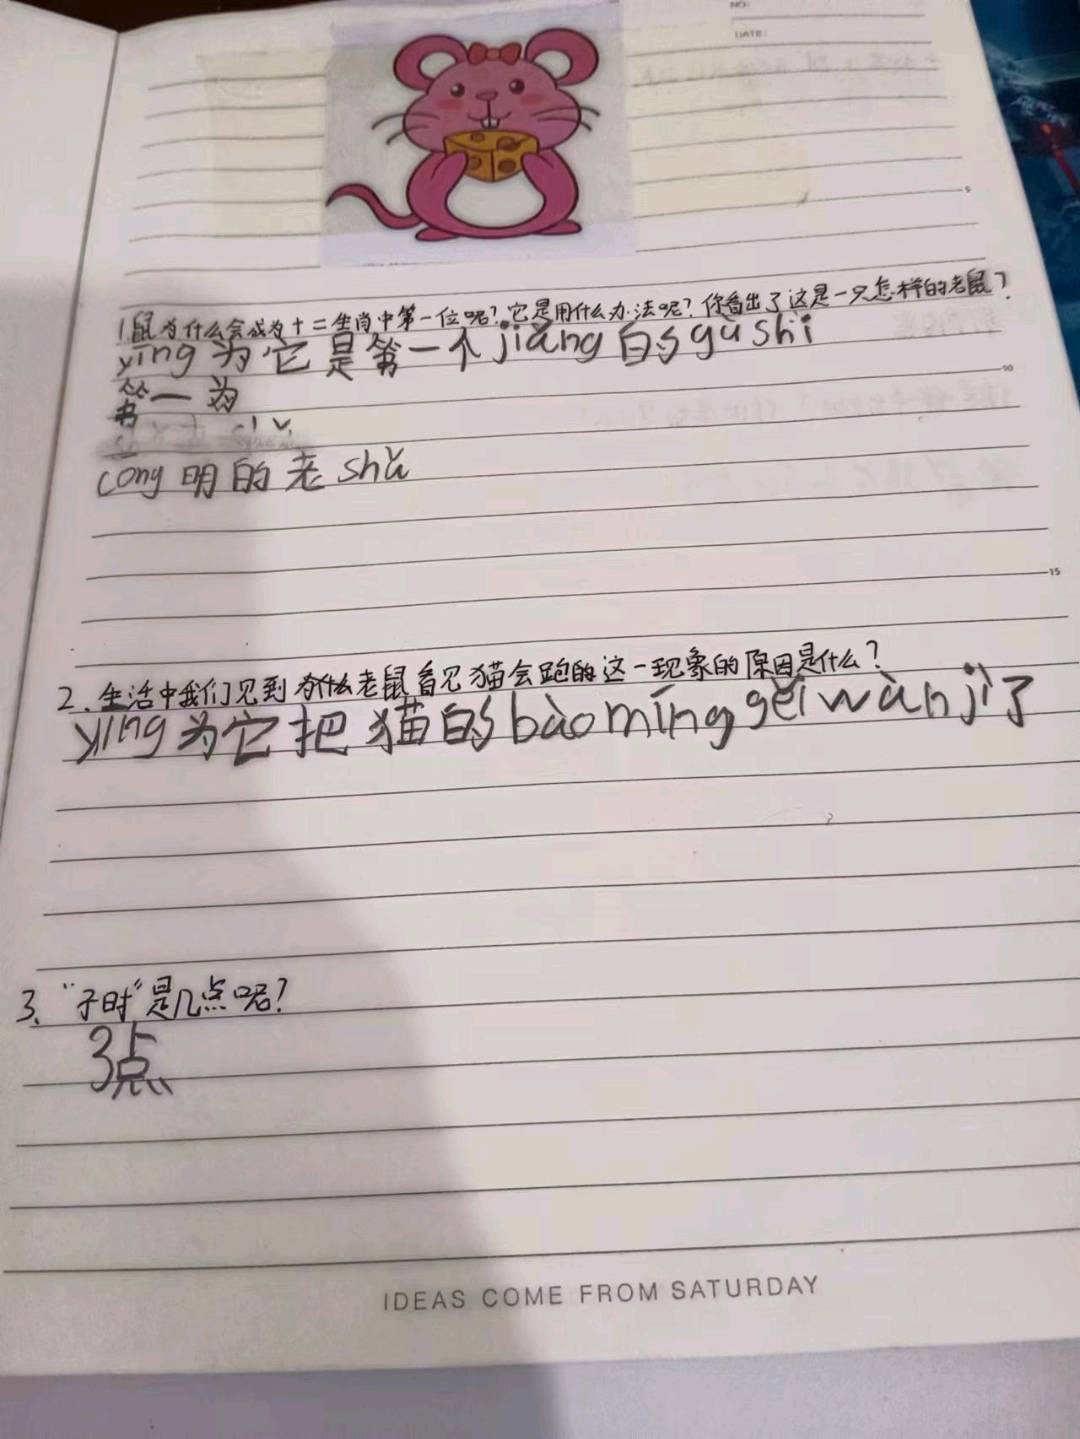 NO:
DATE:
5
1.鼠为什么会成为十二生肖中第一位呢?它是用什么办法呢?你看出了这是一只怎样的老鼠?
yīng为它是第一个jiǎng的gùshi
10
第一为
cōng明的老shǔ
15
2.生活中我们见到为什么老鼠看见猫会跑的这一现象的原因是什么?
yīng为它把猫的bàomīnggěiwànjì了
3、“子时”是几点呢?
3点
IDEAS COME FROM SATURDAY